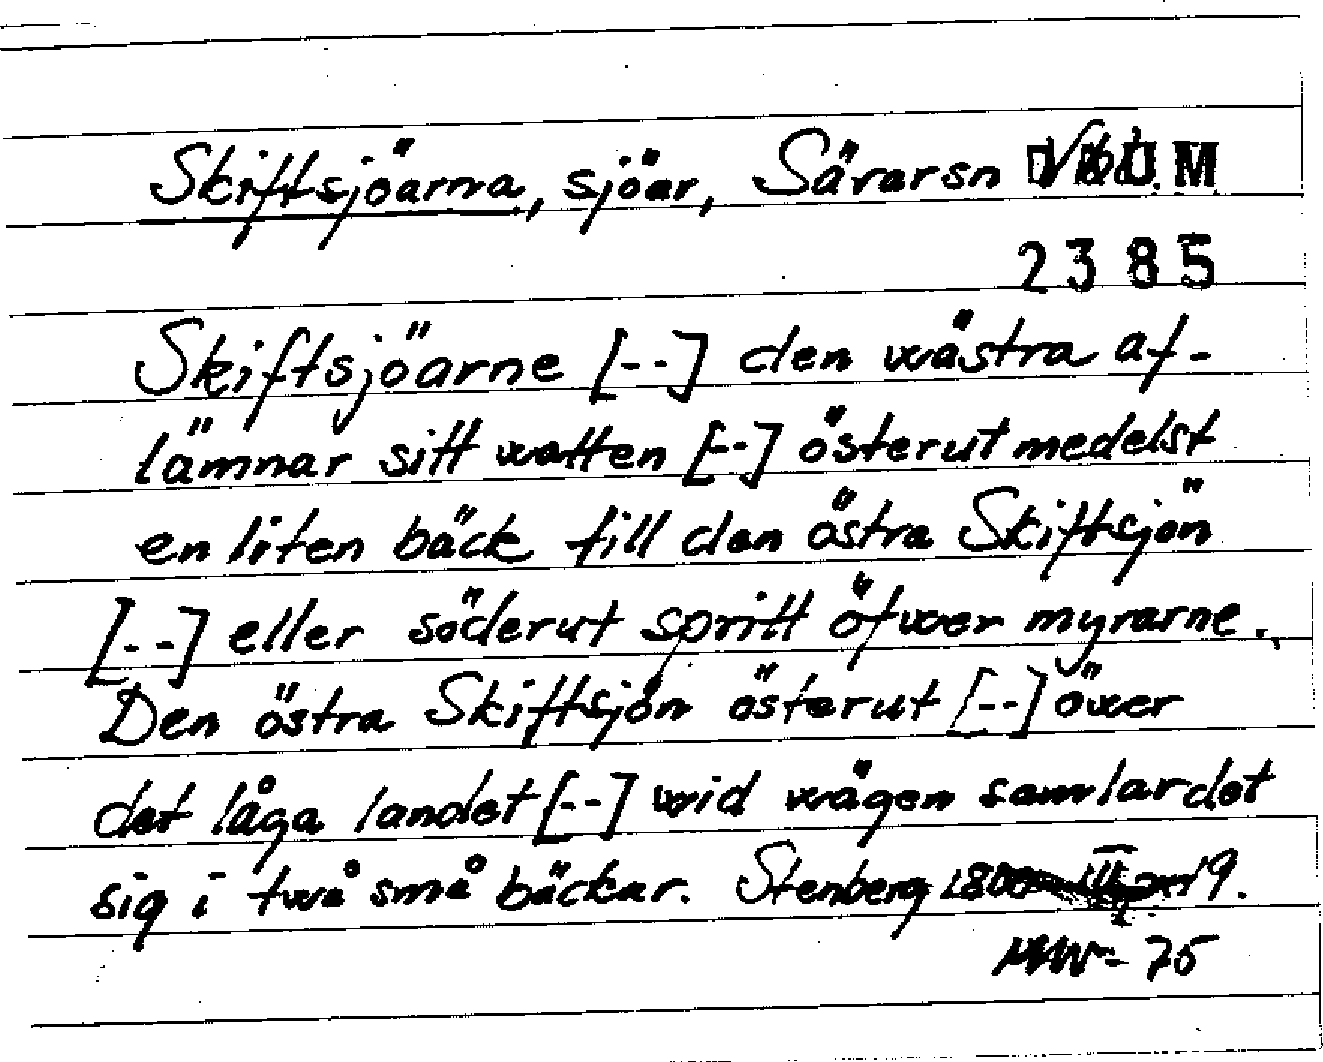 Skiftsjöarna, sjöar, Särarsn
2385
Skiftsjöarne [--] den wästra af-
lämnar sitt watten [--] österut medelst
en liten bäck till den östra Skiftsjön
[--] eller söderut spritt öfwer myrarne.
Den östra Skiftsjön österut [--] öwer
det låga landet [--] wid wägen samlar det
sig i twå små bäckar. Stenberg 1800 19.
75